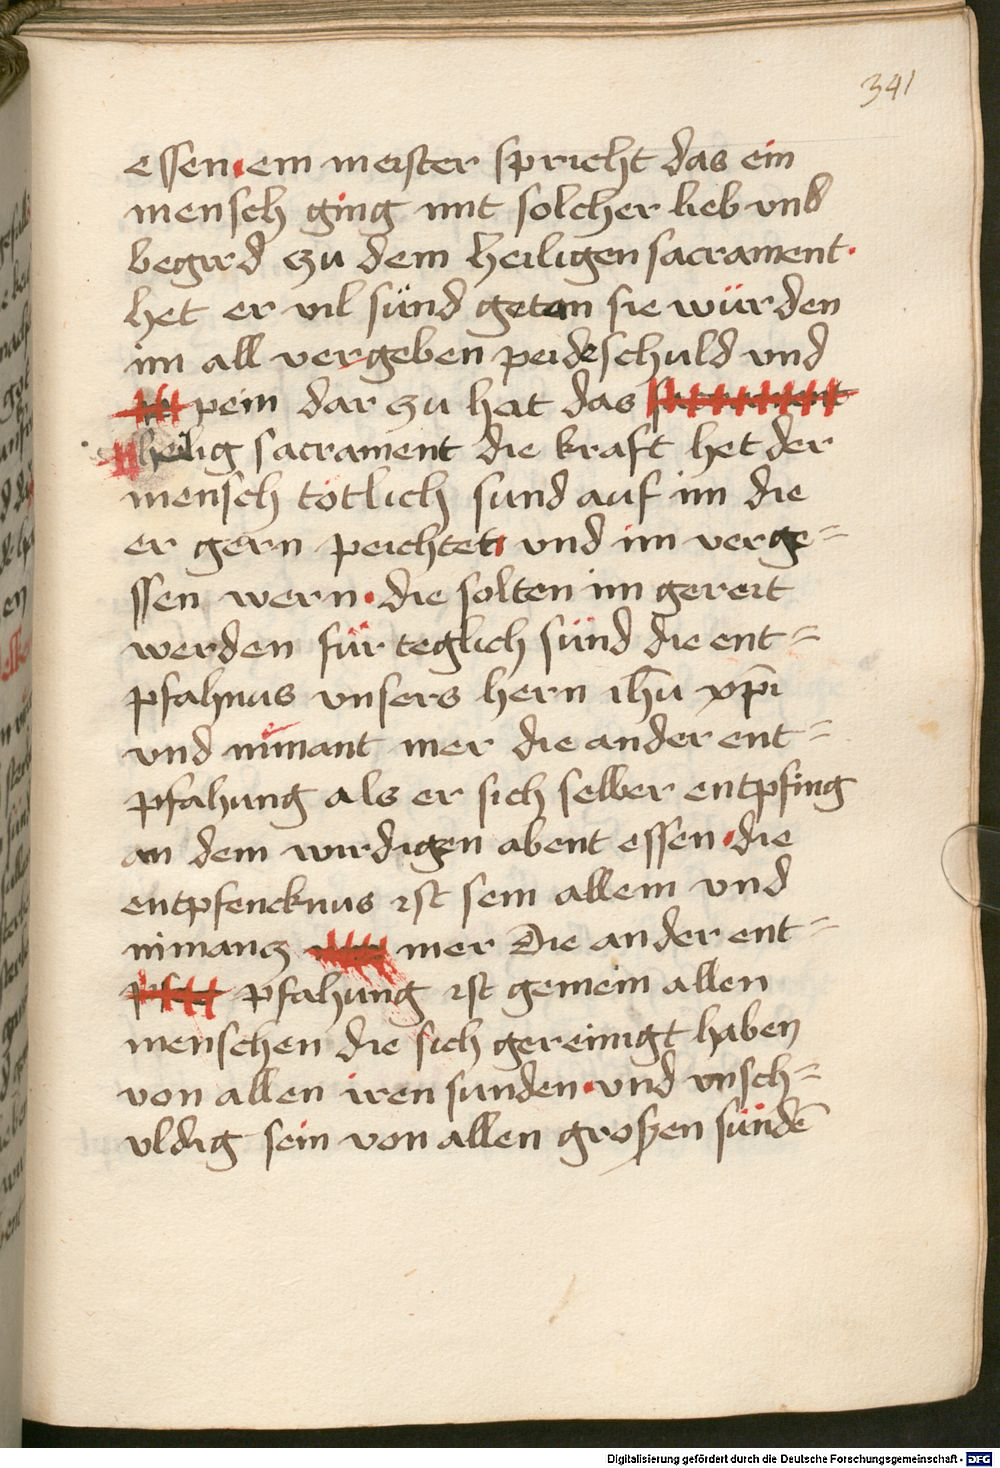 341
essen · ein meister spricht das ein
mensch ging mit solcher lieb vnd
begird zu dem heiligen sacrament ·
het er vil sünd getan sie würden
im all vergeben peide schuld vnd
pein dar zu hat das
heilig sacrament die kraft het der
mensch tötlich sund auf im die
er gern peichtet vnd im verge=
ssen wern · die solten im gereit
werden für teglich sünd die ent=
pfahnus vnsers hern ihū xp̄i
vnd nimant mer die ander ent=
pfahung als er sich selber entpfing
an dem wirdigen abent essen · die
entpfencknus ist sein allein vnd
nimanz mer Die ander ent=
pfahung ist gemein allen
menschen die sich gereinigt haben
von allen iren sunden · vnd vnsch=
uldig sein von allen groszen sündē
Digitalisierung gefördert durch die Deutsche Forschungsgemeinschaft - DFG